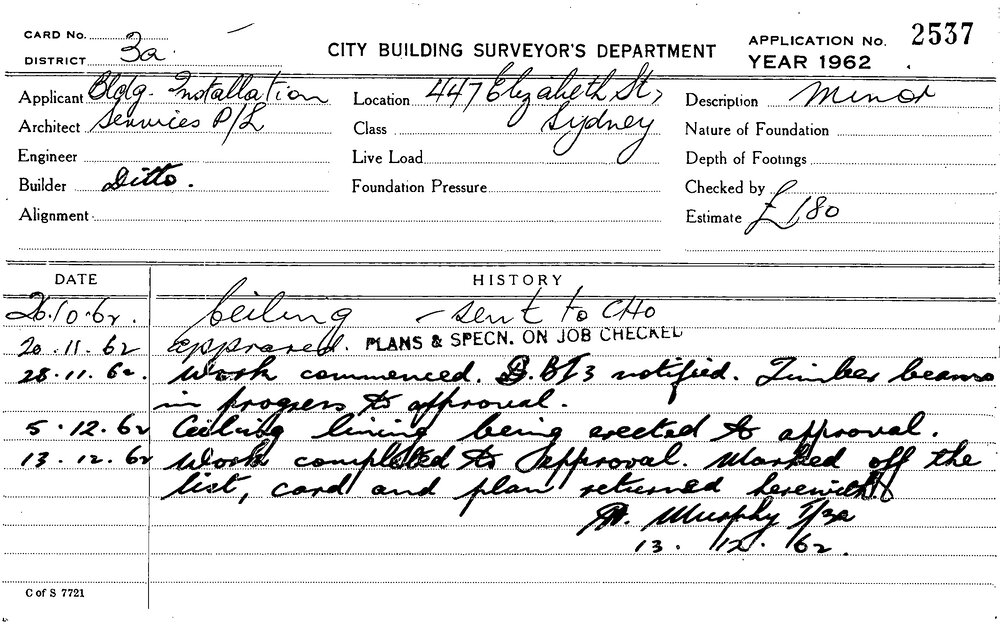 CARD No.
DISTRICT 3a
CITY BUILDING SURVEYOR'S DEPARTMENT
APPLICATION No. 2537
YEAR 1962
Applicant Bldg. Installation
Architect Services P/L
Engineer
Builder Ditto.
Alignment
Location 447 Elizabeth St,
Class Sydney
Live Load
Foundation Pressure
Description Minor
Nature of Foundation
Depth of Footings
Checked by
Estimate £180
DATE HISTORY
26.10.62. Ceiling - sent to CHO
20.11.62 Approved. PLANS & SPECN. ON JOB CHECKED
28.11.62. Work commenced. notified. Timber beams
in progress to approval.
5.12.62 Ceiling lining being erected to approval.
13.12.62 Work completed to approval. Marked off the
list, card and plan returned herewith.
Murphy I/3a
13.12.62.
C of S 7721